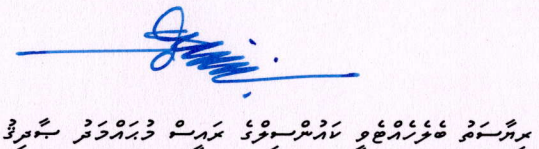 ރިޔާސަތު ބެލެހެއްޓެވި ކައުންސިލްގެ ރައީސް މުޙައްމަދު ޞާދިޤު